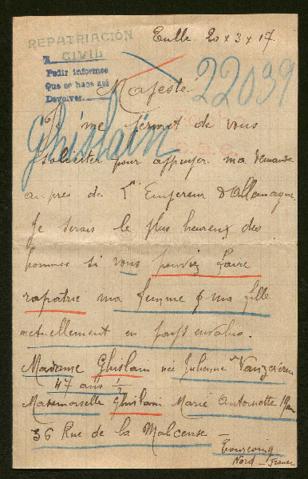 REPATRIACIÓN
CIVIL
Pedir informes
Que se haga así
Devolver
Tulle 20 x 3 x 17
22039
Majesté
Ghislain
me permet de vous
solliciter pour appuyer ma demande
auprès de L'Empereur d'Allemagne
Je serais le plus heureux des
hommes si vous pouviez faire
rapatrié ma femme & ma fille
actuellement en pays envahis.
Madame Ghislain née Julienne
47 ans ½
Mademoiselle Ghislain Marie Antoinette
36 Rue de la Malcense
Tourcoing
Nord France